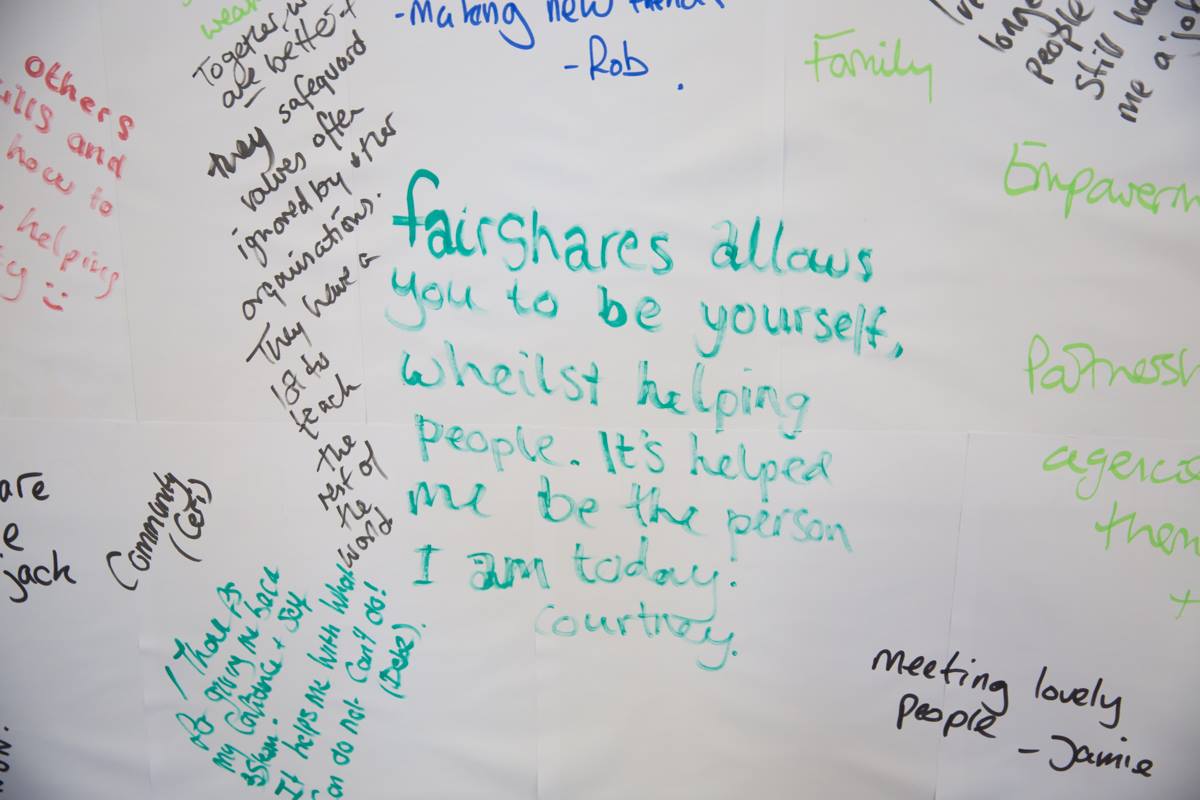 -Making new friends
-Rob.
Family
Together, w
are better +
they safeguard
values often
ignored by other
organisations.
They have a
lot to
teach
the
rest of
the
world
others
ills and
how to
helping
y :)
longer
people
still ha
me a lot
Empowerm
fairshares allows
you to be yourself,
wheilst helping
people. It's helped
me be the person
I am today.
Courtney.
Patnessh
agencie
them
+
are
e
jack
Community
giving me back
my confidence +
It helps me with what
do not can't do!
Meeting lovely
people - Jamie